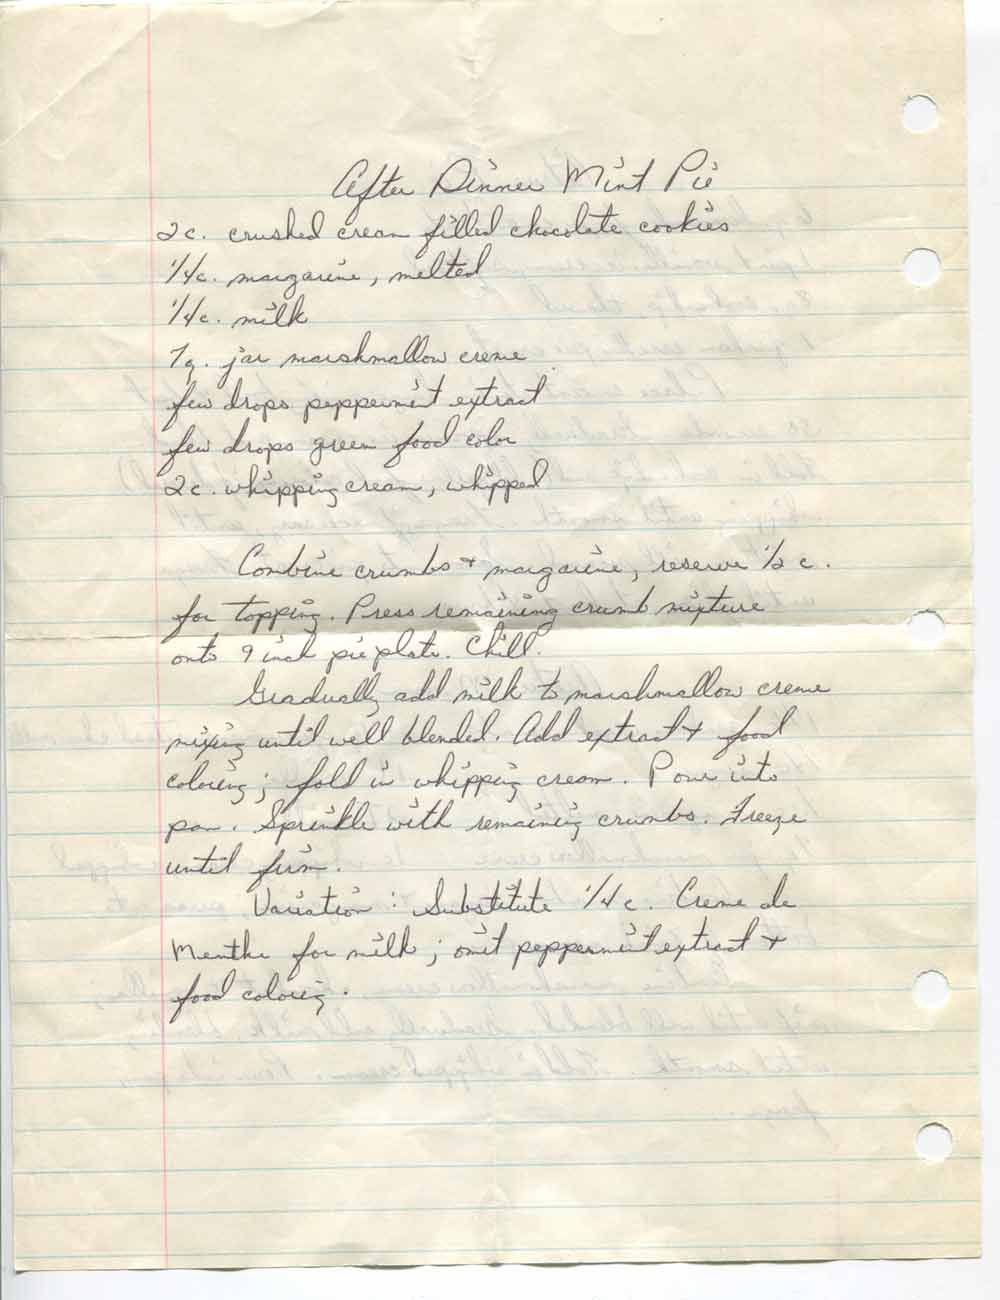 After Dinner Mint Pie
2c. crushed cream filled chocolate cookies
1/4c. margarine, melted
1/4c. milk
7oz. jar marshmallow creme
few drops peppermint extract
few drops green food color
2c. whipping cream, whipped
Combine crumbs + margarine, reserve 1/2 c.
for topping. Press remaining crumb mixture
onto 9 inch pie plate. Chill.
Gradually add milk to marshmallow creme
mixing until well blended. Add extract + food
coloring; fold in whipping cream. Pour into
pan. Sprinkle with remaining crumbs. Freeze
until firm.
Variation: Substitute 1/4 c. Creme de
Menthe for milk; omit peppermint extract +
food coloring.